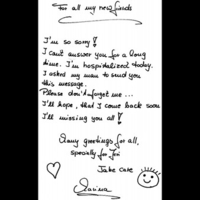 For all my new friends
I'm so sorry!
I can't answer you for a long
time. I'm hospitalized today.
I asked my man to send you
this message.
Please don't forget me...
I'll hope, that I come back soon
I'll missing you all!
Many greetings for all,
specially for Joi
Take care